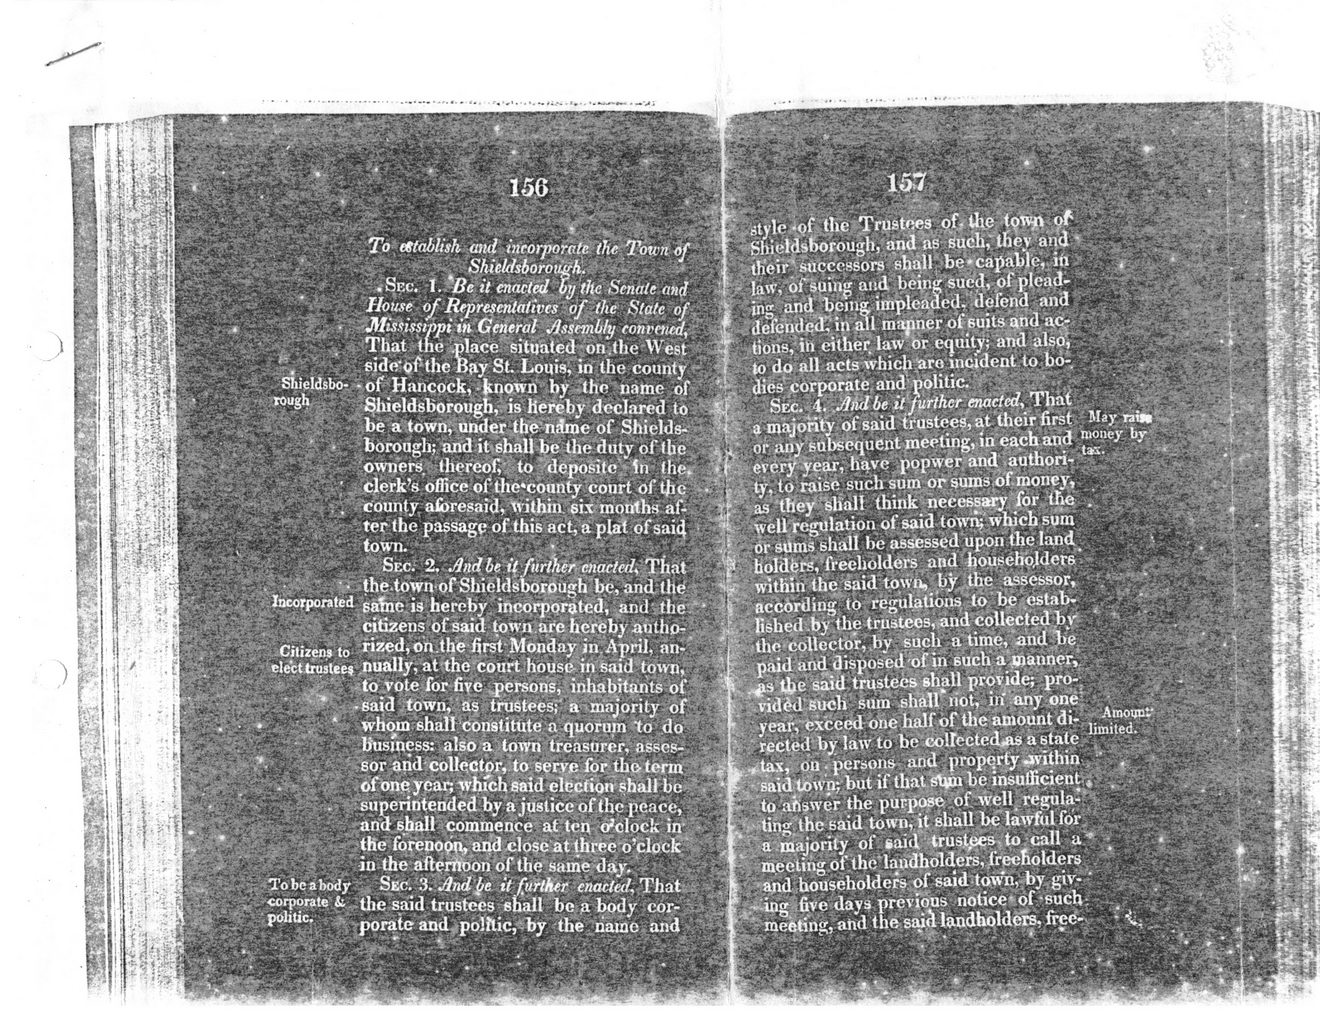 156
To establish and incorporate the Town of
Shieldsborough.
SEC. 1. Be it enacted by the Senate and
House of Representatives of the State of
Mississippi in General Assembly convened,
That the place situated on the West
side of the Bay St. Louis, in the county
Shieldsbo-
rough
of Hancock, known by the name of
Shieldsborough, is hereby declared to
be a town, under the name of Shields-
borough; and it shall be the duty of the
owners thereof, to deposite in the
clerk's office of the county court of the
county aforesaid, within six months af-
ter the passage of this act, a plat of said
town.
SEC. 2. And be it further enacted, That
the town of Shieldsborough be, and the
Incorporated
same is hereby incorporated, and the
citizens of said town are hereby autho-
rized, on the first Monday in April, an-
Citizens to
elect trustees
nually, at the court house in said town,
to vote for five persons, inhabitants of
said town, as trustees; a majority of
whom shall constitute a quorum to do
business: also a town treasurer, asses-
sor and collector, to serve for the term
of one year; which said election shall be
superintended by a justice of the peace,
and shall commence at ten o'clock in
the forenoon, and close at three o'clock
in the afternoon of the same day.
To be a body
corporate &
politic.
SEC. 3. And be it further enacted, That
the said trustees shall be a body cor-
porate and politic, by the name and
157
style of the Trustees of the town of
Shieldsborough, and as such, they and
their successors shall be capable, in
law, of suing and being sued, of plead-
ing and being impleaded, defend and
defended, in all manner of suits and ac-
tions, in either law or equity; and also,
to do all acts which are incident to bo-
dies corporate and politic.
SEC. 4. And be it further enacted, That
May raise
money by
tax.
a majority of said trustees, at their first
or any subsequent meeting, in each and
every year, have popwer and authori-
ty, to raise such sum or sums of money,
as they shall think necessary for the
well regulation of said town; which sum
or sums shall be assessed upon the land
holders, freeholders and householders
within the said town, by the assessor,
according to regulations to be estab-
lished by the trustees, and collected by
the collector, by such a time, and be
paid and disposed of in such a manner,
as the said trustees shall provide; pro-
vided such sum shall not, in any one
Amount
limited.
year, exceed one half of the amount di-
rected by law to be collected as a state
tax, on persons and property within
said town; but if that sum be insufficient
to answer the purpose of well regula-
ting the said town, it shall be lawful for
a majority of said trustees to call a
meeting of the landholders, freeholders
and householders of said town, by giv-
ing five days previous notice of such
meeting, and the said landholders, free-